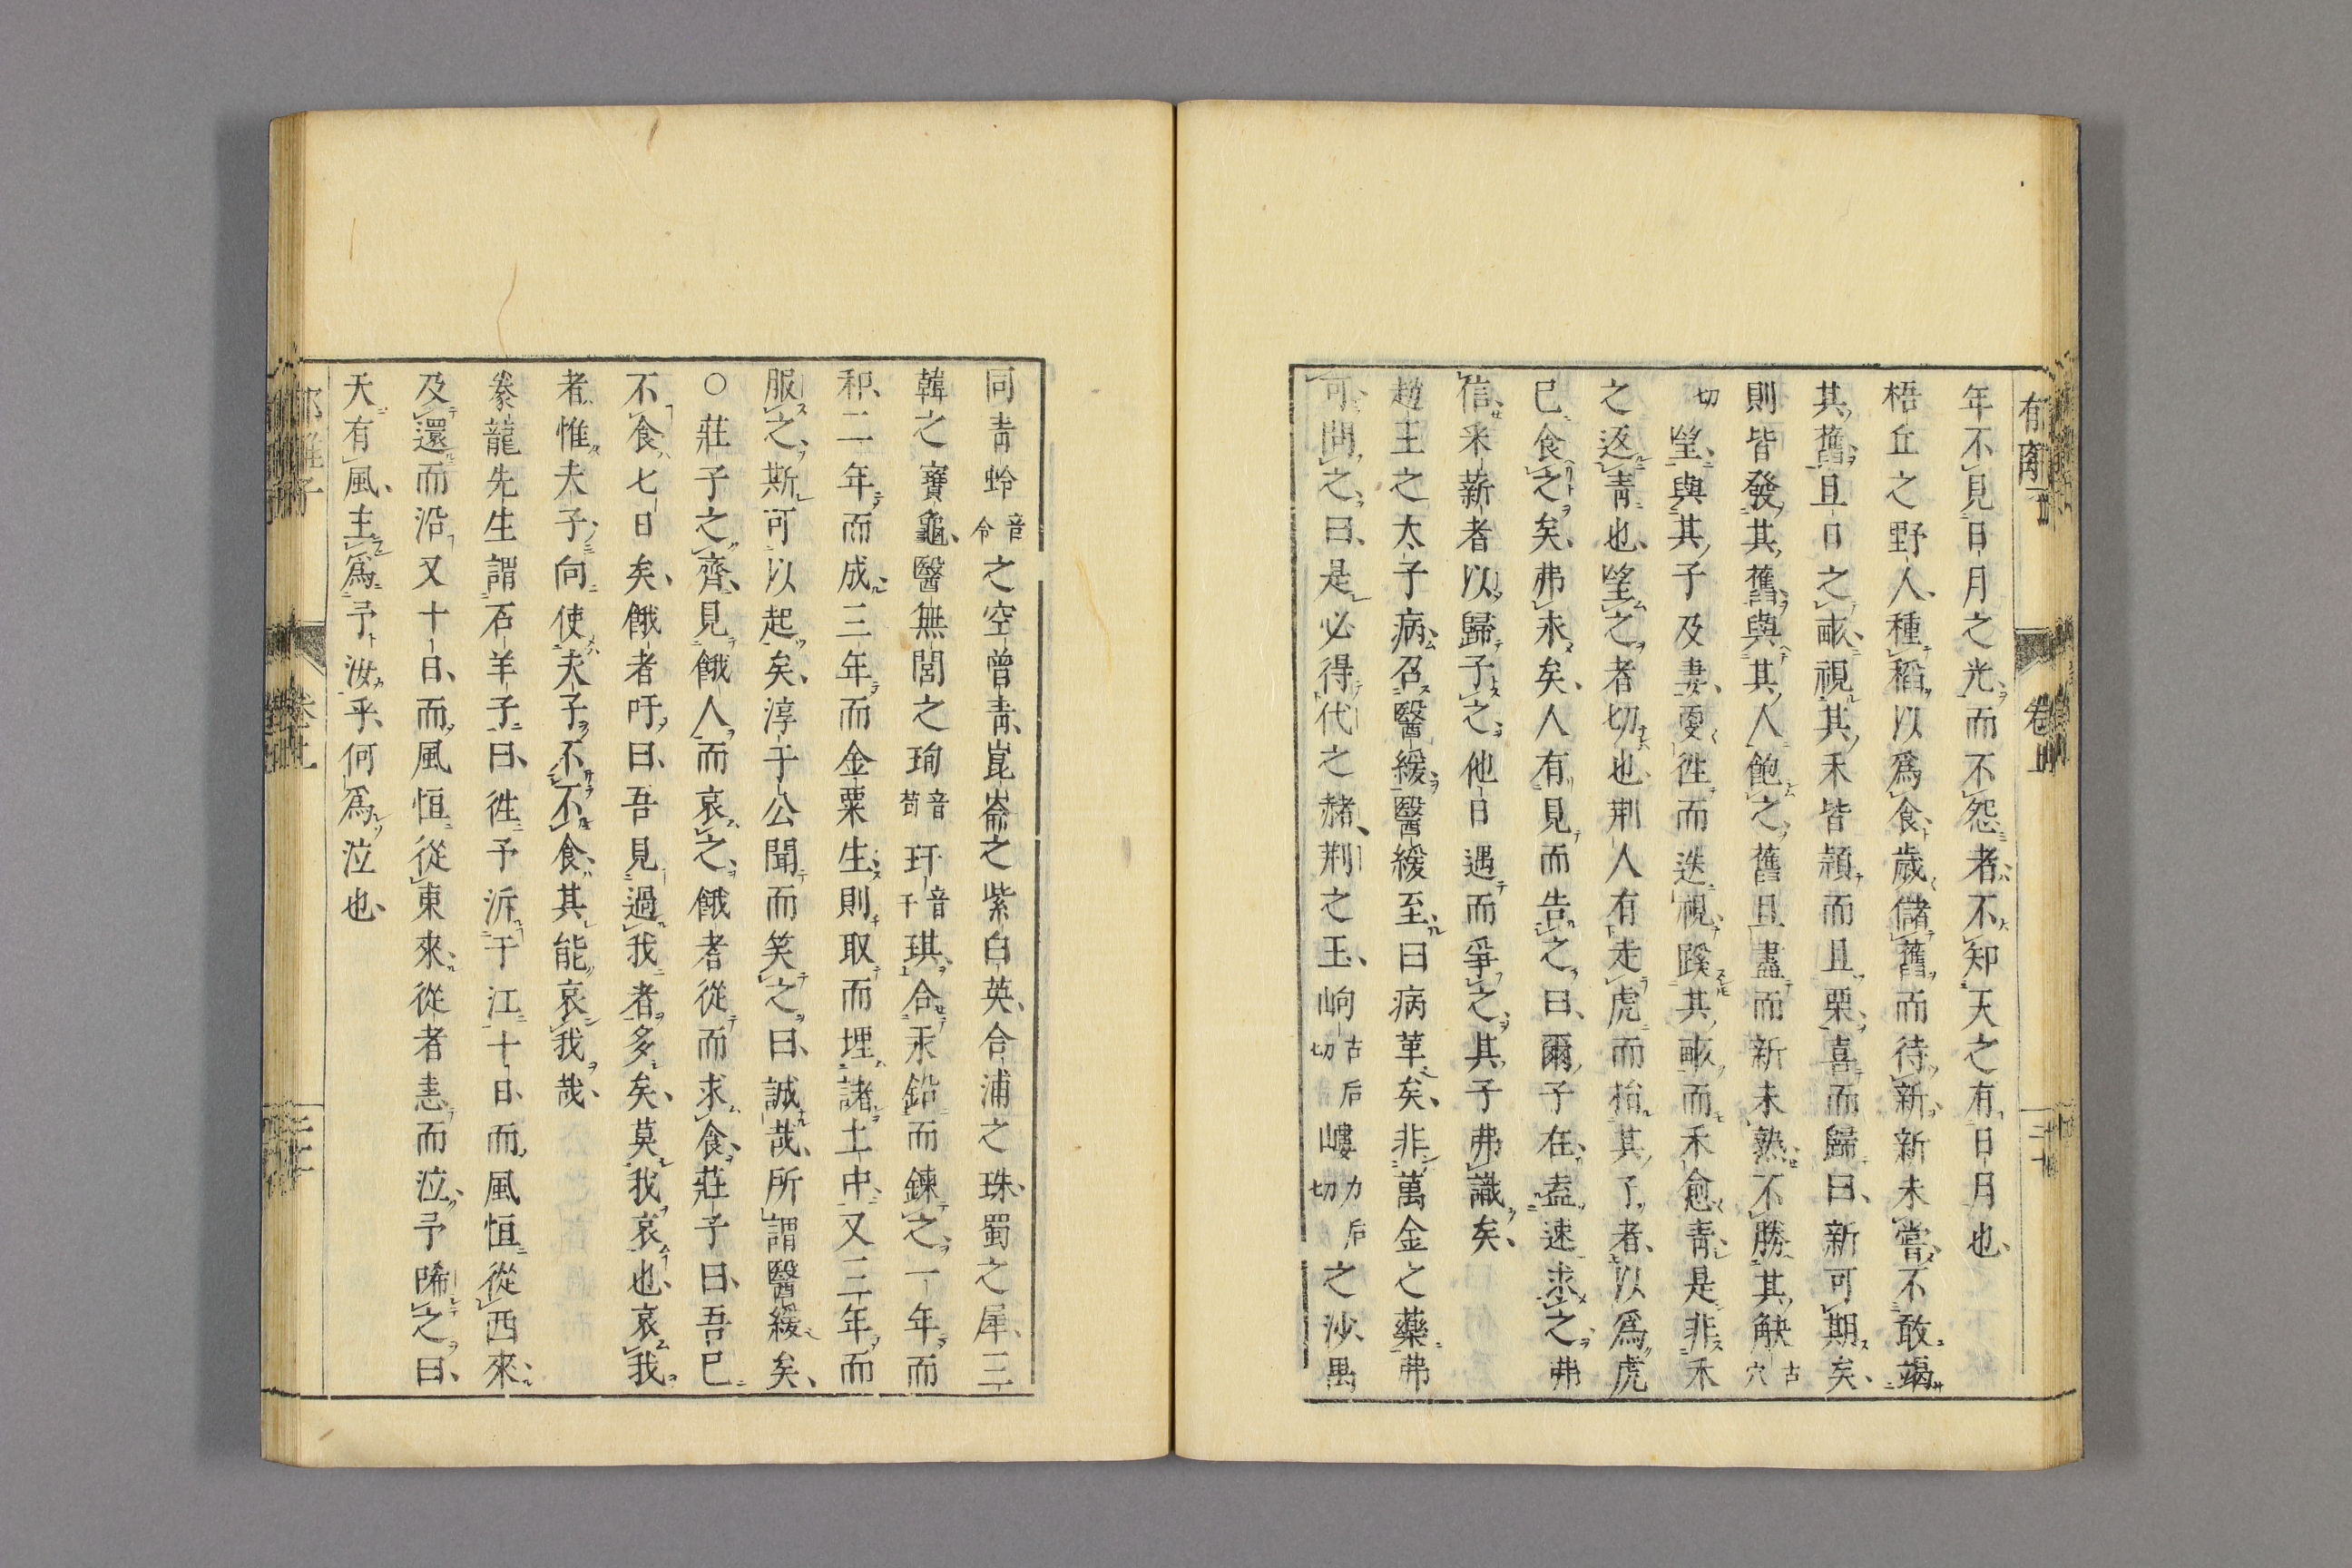 年不見日月之光而不怨者不知天之有日月也
梧丘之野人種稻以爲食歲儲舊而待新新未嘗不敢竭
其舊且日之畝視其禾皆穎而且栗喜而歸曰新可期矣
則皆發其舊與其人飽之舊且盡而新未熟不勝其觖古穴
切望與其子及妻更徃而迭視蹊其畝而禾愈靑是非禾
之返靑也望之者切也荆人有走虎而捐其子者以爲虎
已食之矣弗求矣人有見而告之曰爾子在盍速求之弗
信采薪者以歸子之他日遇而爭之其子弗識矣
趙王之太子病召醫緩醫緩至曰病革矣非萬金之藥弗
可問之曰是必得代之赭荆之玉岣古后切嶁力后切之沙禺
同靑蛉音令之空曾靑崑崙之紫白英合浦之珠蜀之犀三
韓之寶龜醫無閭之珣音荀玗音干琪合汞鉛而鍊之一年而
和二年而成三年而金粟生則取而埋諸土中又三年而
服之斯可以起矣淳于公聞而笑之曰誠哉所謂醫緩矣
○莊子之齊見餓人而哀之餓者從而求食莊子曰吾已
不食七日矣餓者吁曰吾見過我者多矣莫我哀也哀我
者惟夫子向使夫子不不食其能哀我哉
豢龍先生謂石羊子曰徃予泝于江十日而風恒從西來
及還而沿又十日而風恒從東來從者恚而泣予唏之曰
天有風主爲予汝乎何爲泣也